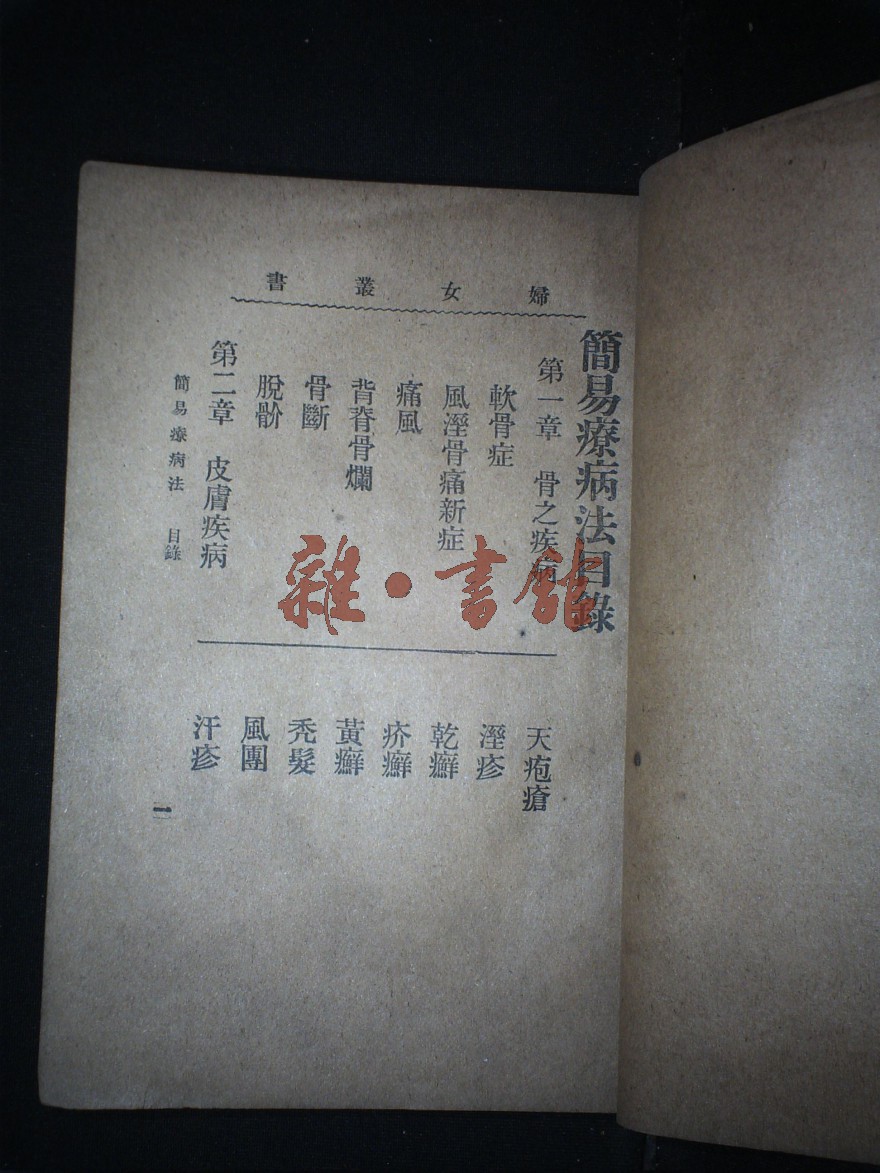 婦女叢書
簡易療病法目錄
第一章 骨之疾病
軟骨症
風溼骨痛新症
痛風
背脊骨爛
骨斷
脫骱
第二章 皮膚疾病
天疱瘡
溼疹
乾癬
疥癬
黃癬
禿髮
風團
汗疹
簡易療病法 目錄
一
雜·書館